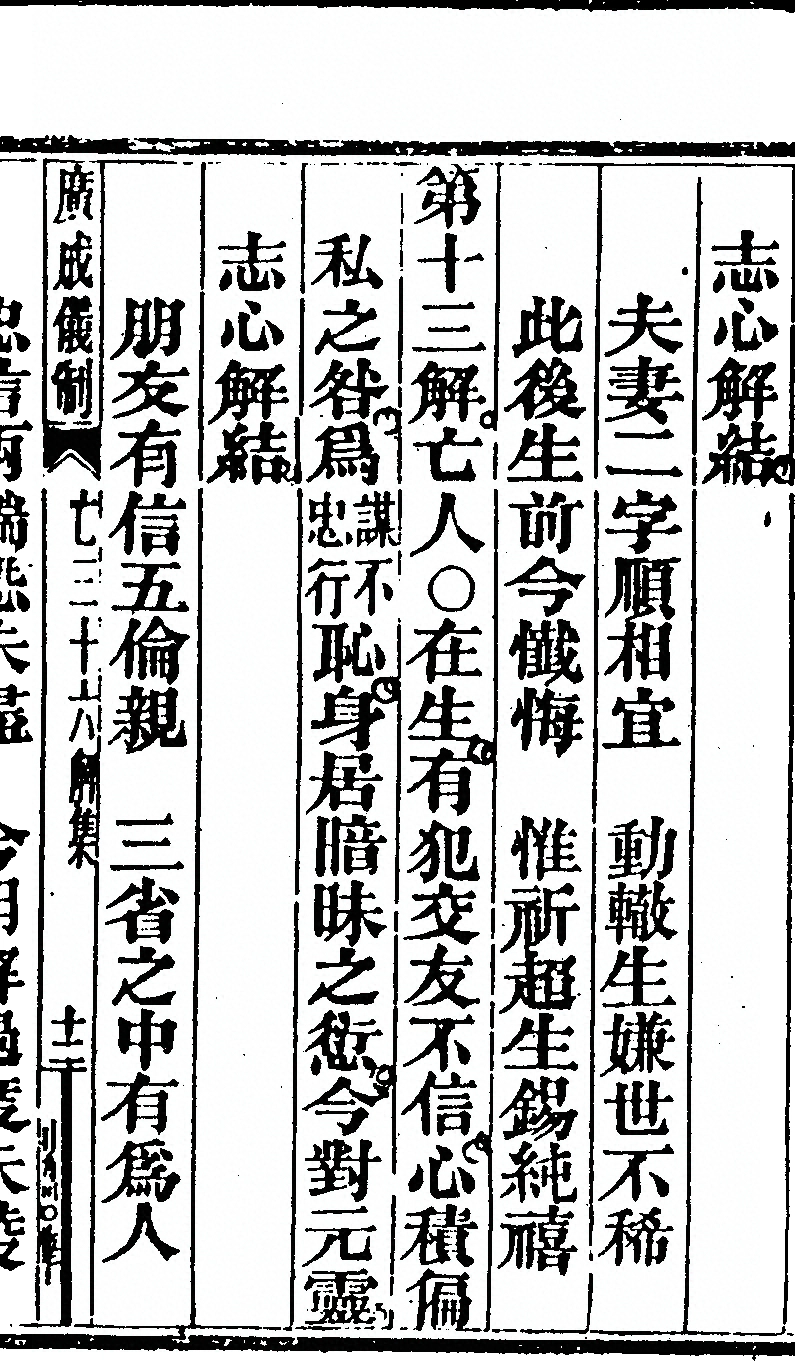 志心解結
夫妻二字順相宜　動轍生嫌世不稀
此後生前今懺悔　惟祈超生錫純禧
第十三解亡人○在生有犯交友不信心積偏
私之咎爲謀不忠行恥身居暗昧之愆今對元靈
志心解結
朋友有信五倫親　三省之中有爲人
廣成儀制
七三十六解集
十二